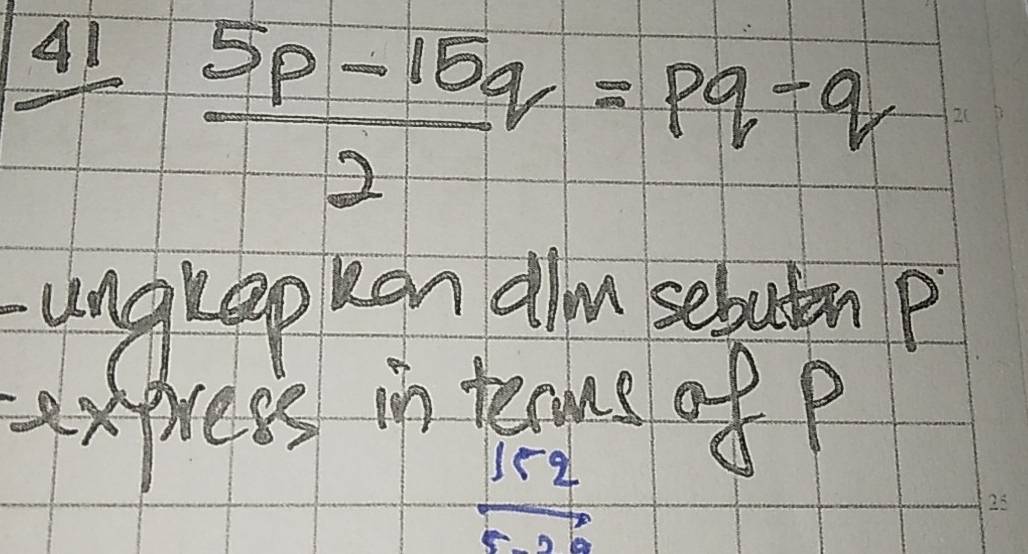 41 5p - 15q = pq - q
2
- ungkapkan dlm sebutan p
- express in terms of p
20
25